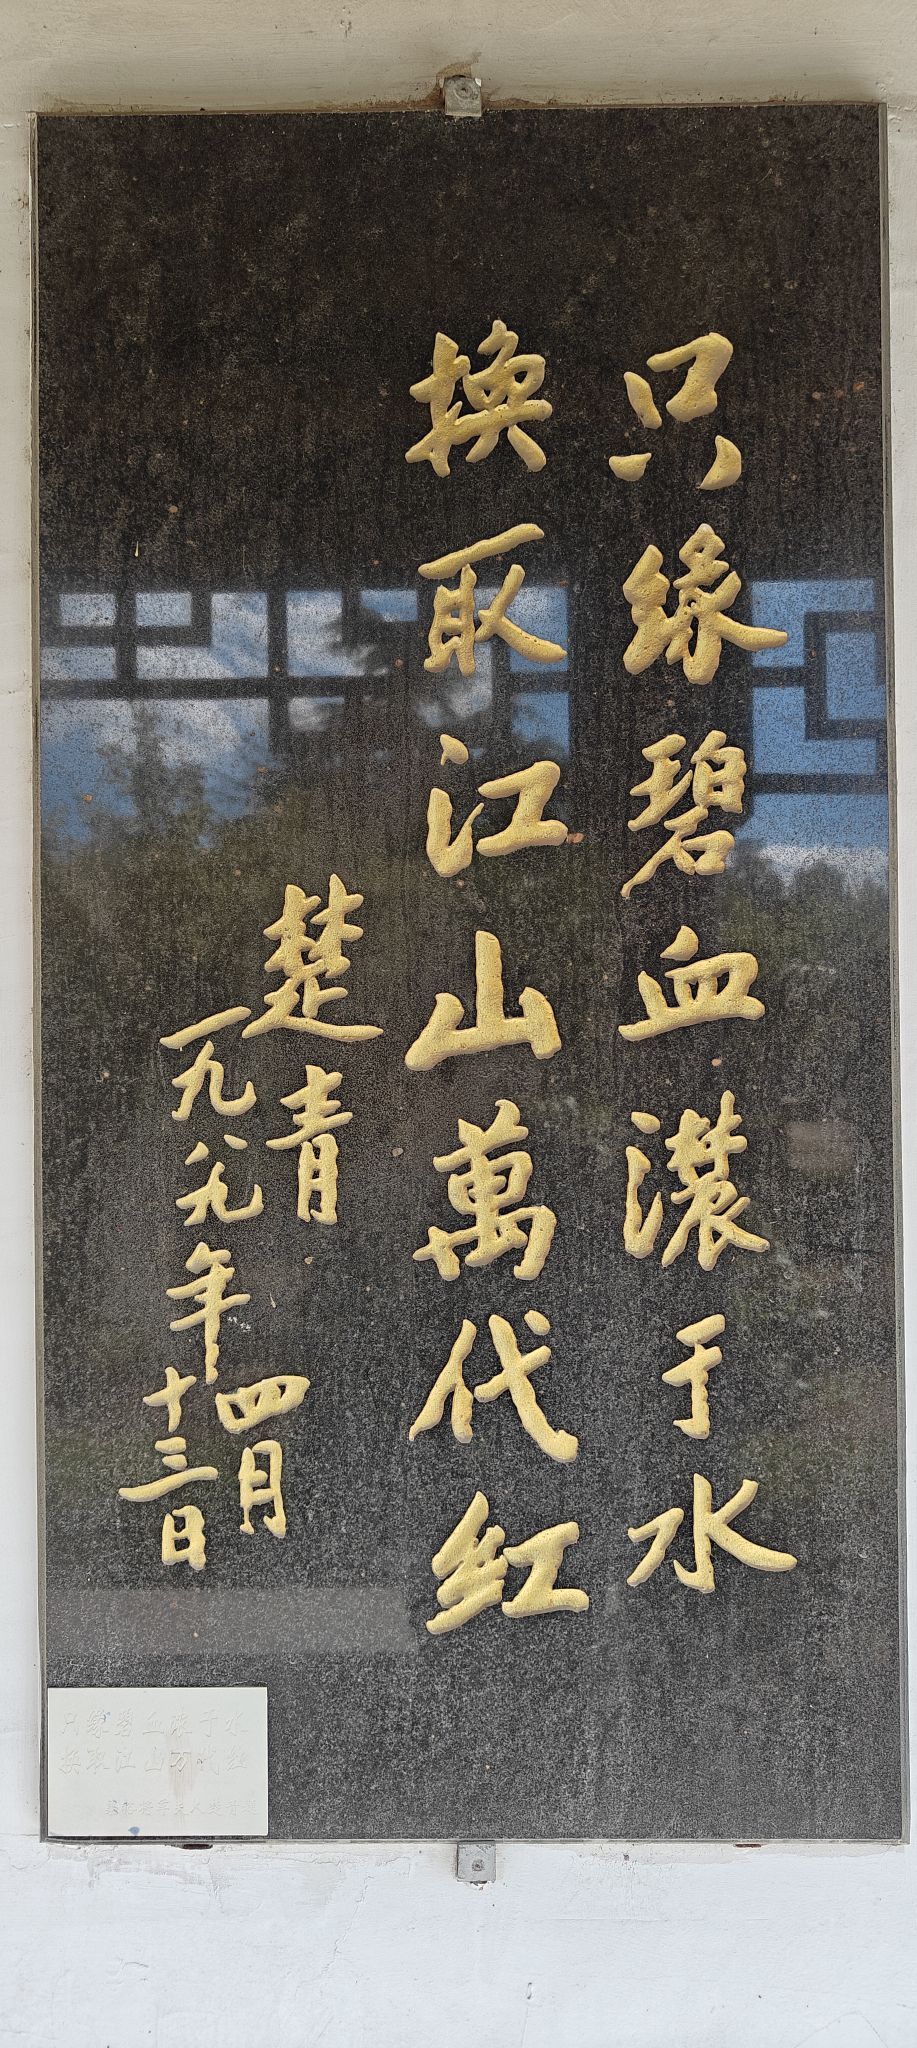 只缘碧血濃于水
换取江山萬代红
楚青
一九八九年四月
十三日
只缘碧血浓于水
换取江山万代红